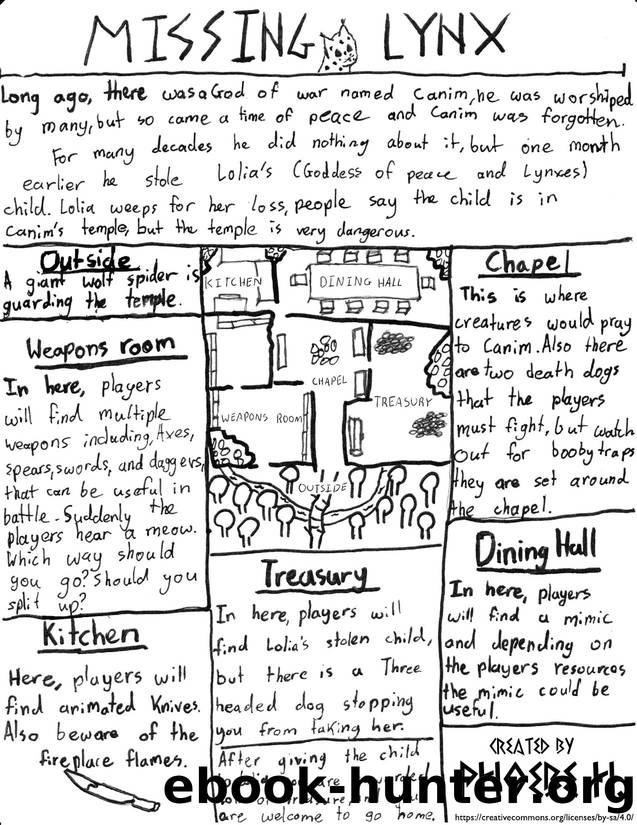 MISSING LYNX
Long ago, there was a God of war named Canim, he was worshiped
by many, but so came a time of peace and Canim was forgotten.
For many decades he did nothing about it, but one month
earlier he stole Lolia's (Goddess of peace and Lynxes)
child. Lolia weeps for her loss, people say the child is in
Canim's temple, but the temple is very dangerous.
Outside
A giant wolf spider is
guarding the temple.
Weapons room
In here, players
will find multiple
weapons including, Axes,
spears, swords, and daggers,
that can be useful in
battle. Suddenly the
players hear a meow.
Which way should
you go? Should you
split up?
Kitchen
Here, players will
find animated Knives.
Also beware of the
fireplace flames.
KITCHEN
DINING HALL
CHAPEL
TREASURY
WEAPONS ROOM
OUTSIDE
Treasury
In here, players will
find Lolia's stolen child,
but there is a Three
headed dog stopping
you from taking her.
After giving the child
are welcome to go home.
Chapel
This is where
creatures would pray
to Canim. Also there
are two death dogs
that the players
must fight, but watch
out for booby traps
they are set around
the chapel.
Dining Hall
In here, players
will find a mimic
and depending on
the players resources
the mimic could be
useful.
CREATED BY
ebook-hunter.org
https://creativecommons.org/licenses/by-sa/4.0/